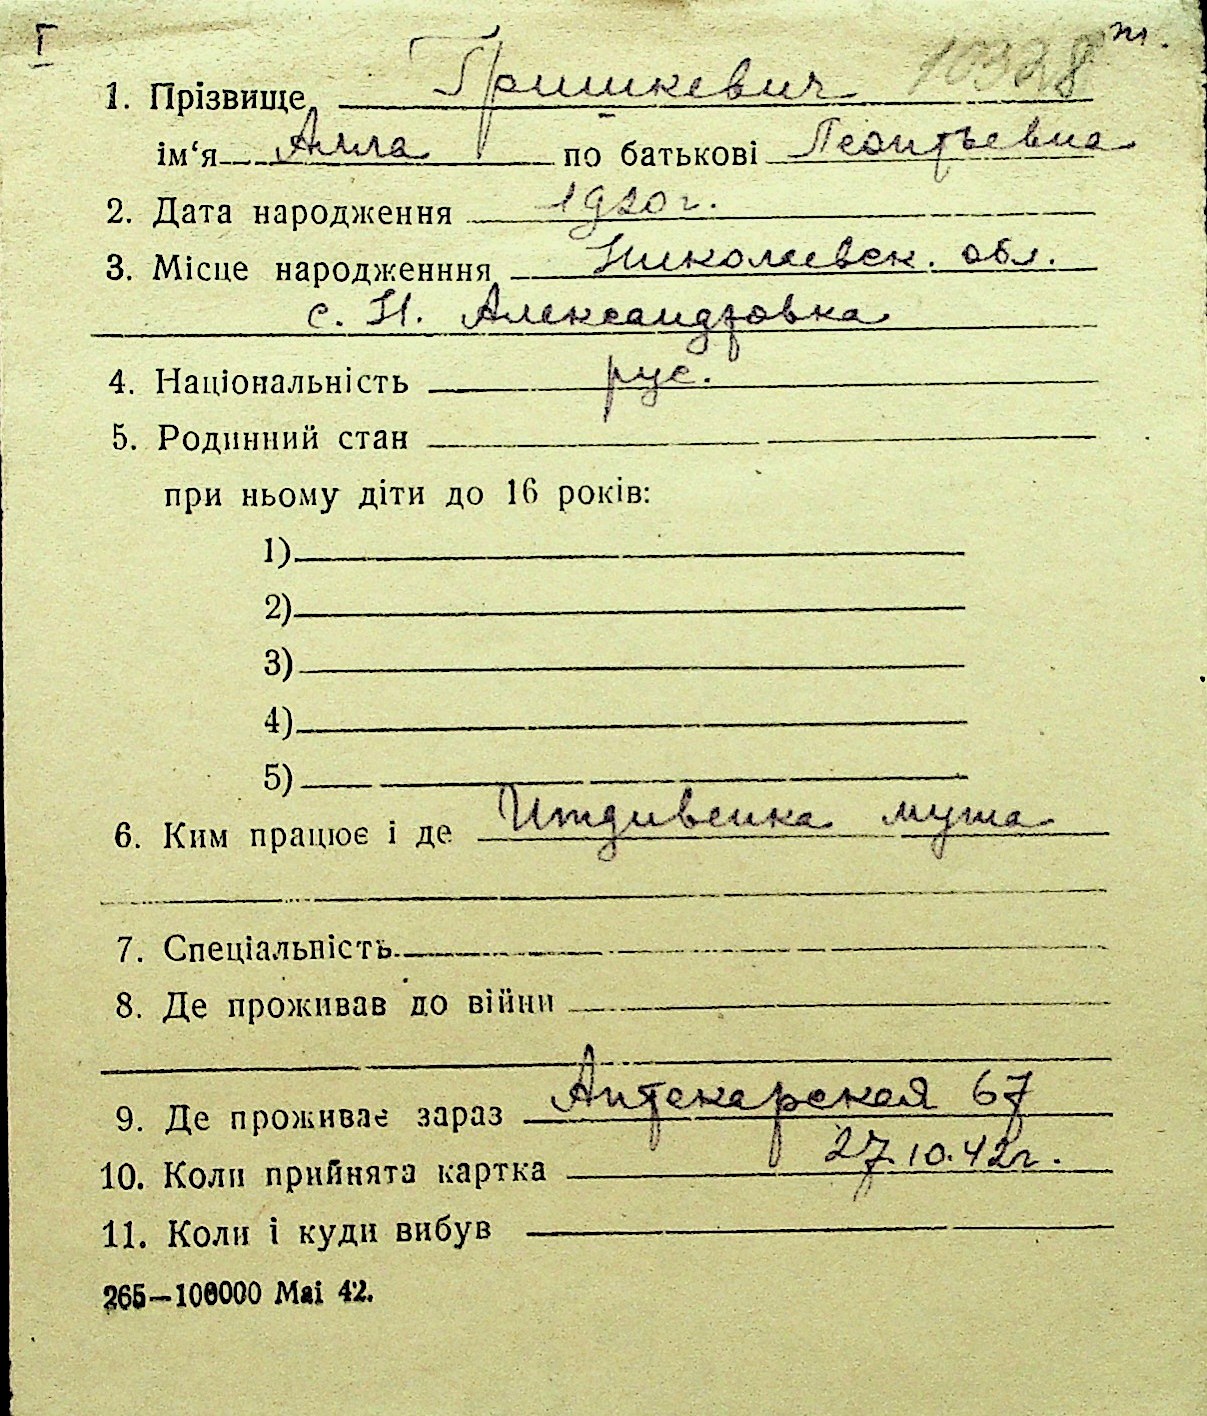 I
10328 ж.
1. Прізвище Гришкевич
ім‘я Алла по батькові Леонтьевна
2. Дата народження 1920 г.
3. Місце народженння Николаевск. обл.
с. Н. Александровка
4. Національність рус.
5. Родинний стан
при ньому діти до 16 років:
1)
2)
3)
4)
5)
6. Ким працює і де Иждивенка мужа
7. Спеціальність
8. Де проживав до війни
9. Де проживає зараз Аптекарская 67
10. Коли прийнята картка 27.10.42 г.
11. Коли і куди вибув
265—100000 Mai 42.